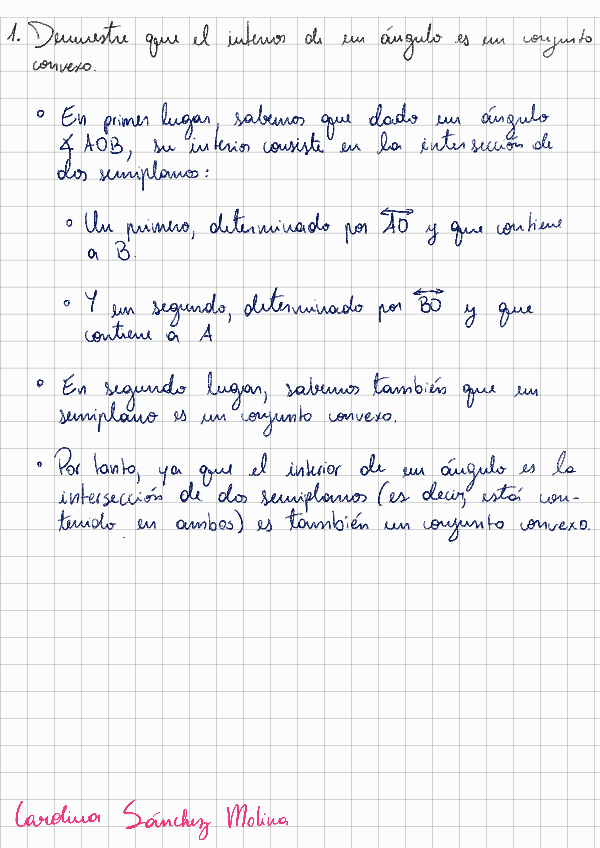 1. Demuestre que el interior de un ángulo es un conjunto
convexo.
◦ En primer lugar, sabemos que dado un ángulo
∡ AOB, su interior consiste en la intersección de
dos semiplanos:
◦ Un primero, determinado por \overleftrightarrow{AO} y que contiene
a B.
◦ Y un segundo, determinado por \overleftrightarrow{BO} y que
contiene a A
◦ En segundo lugar, sabemos también que un
semiplano es un conjunto convexo.
◦ Por tanto, ya que el interior de un ángulo es la
intersección de dos semiplanos (es decir, está con-
tenido en ambos) es también un conjunto convexo.
Carolina Sánchez Molina